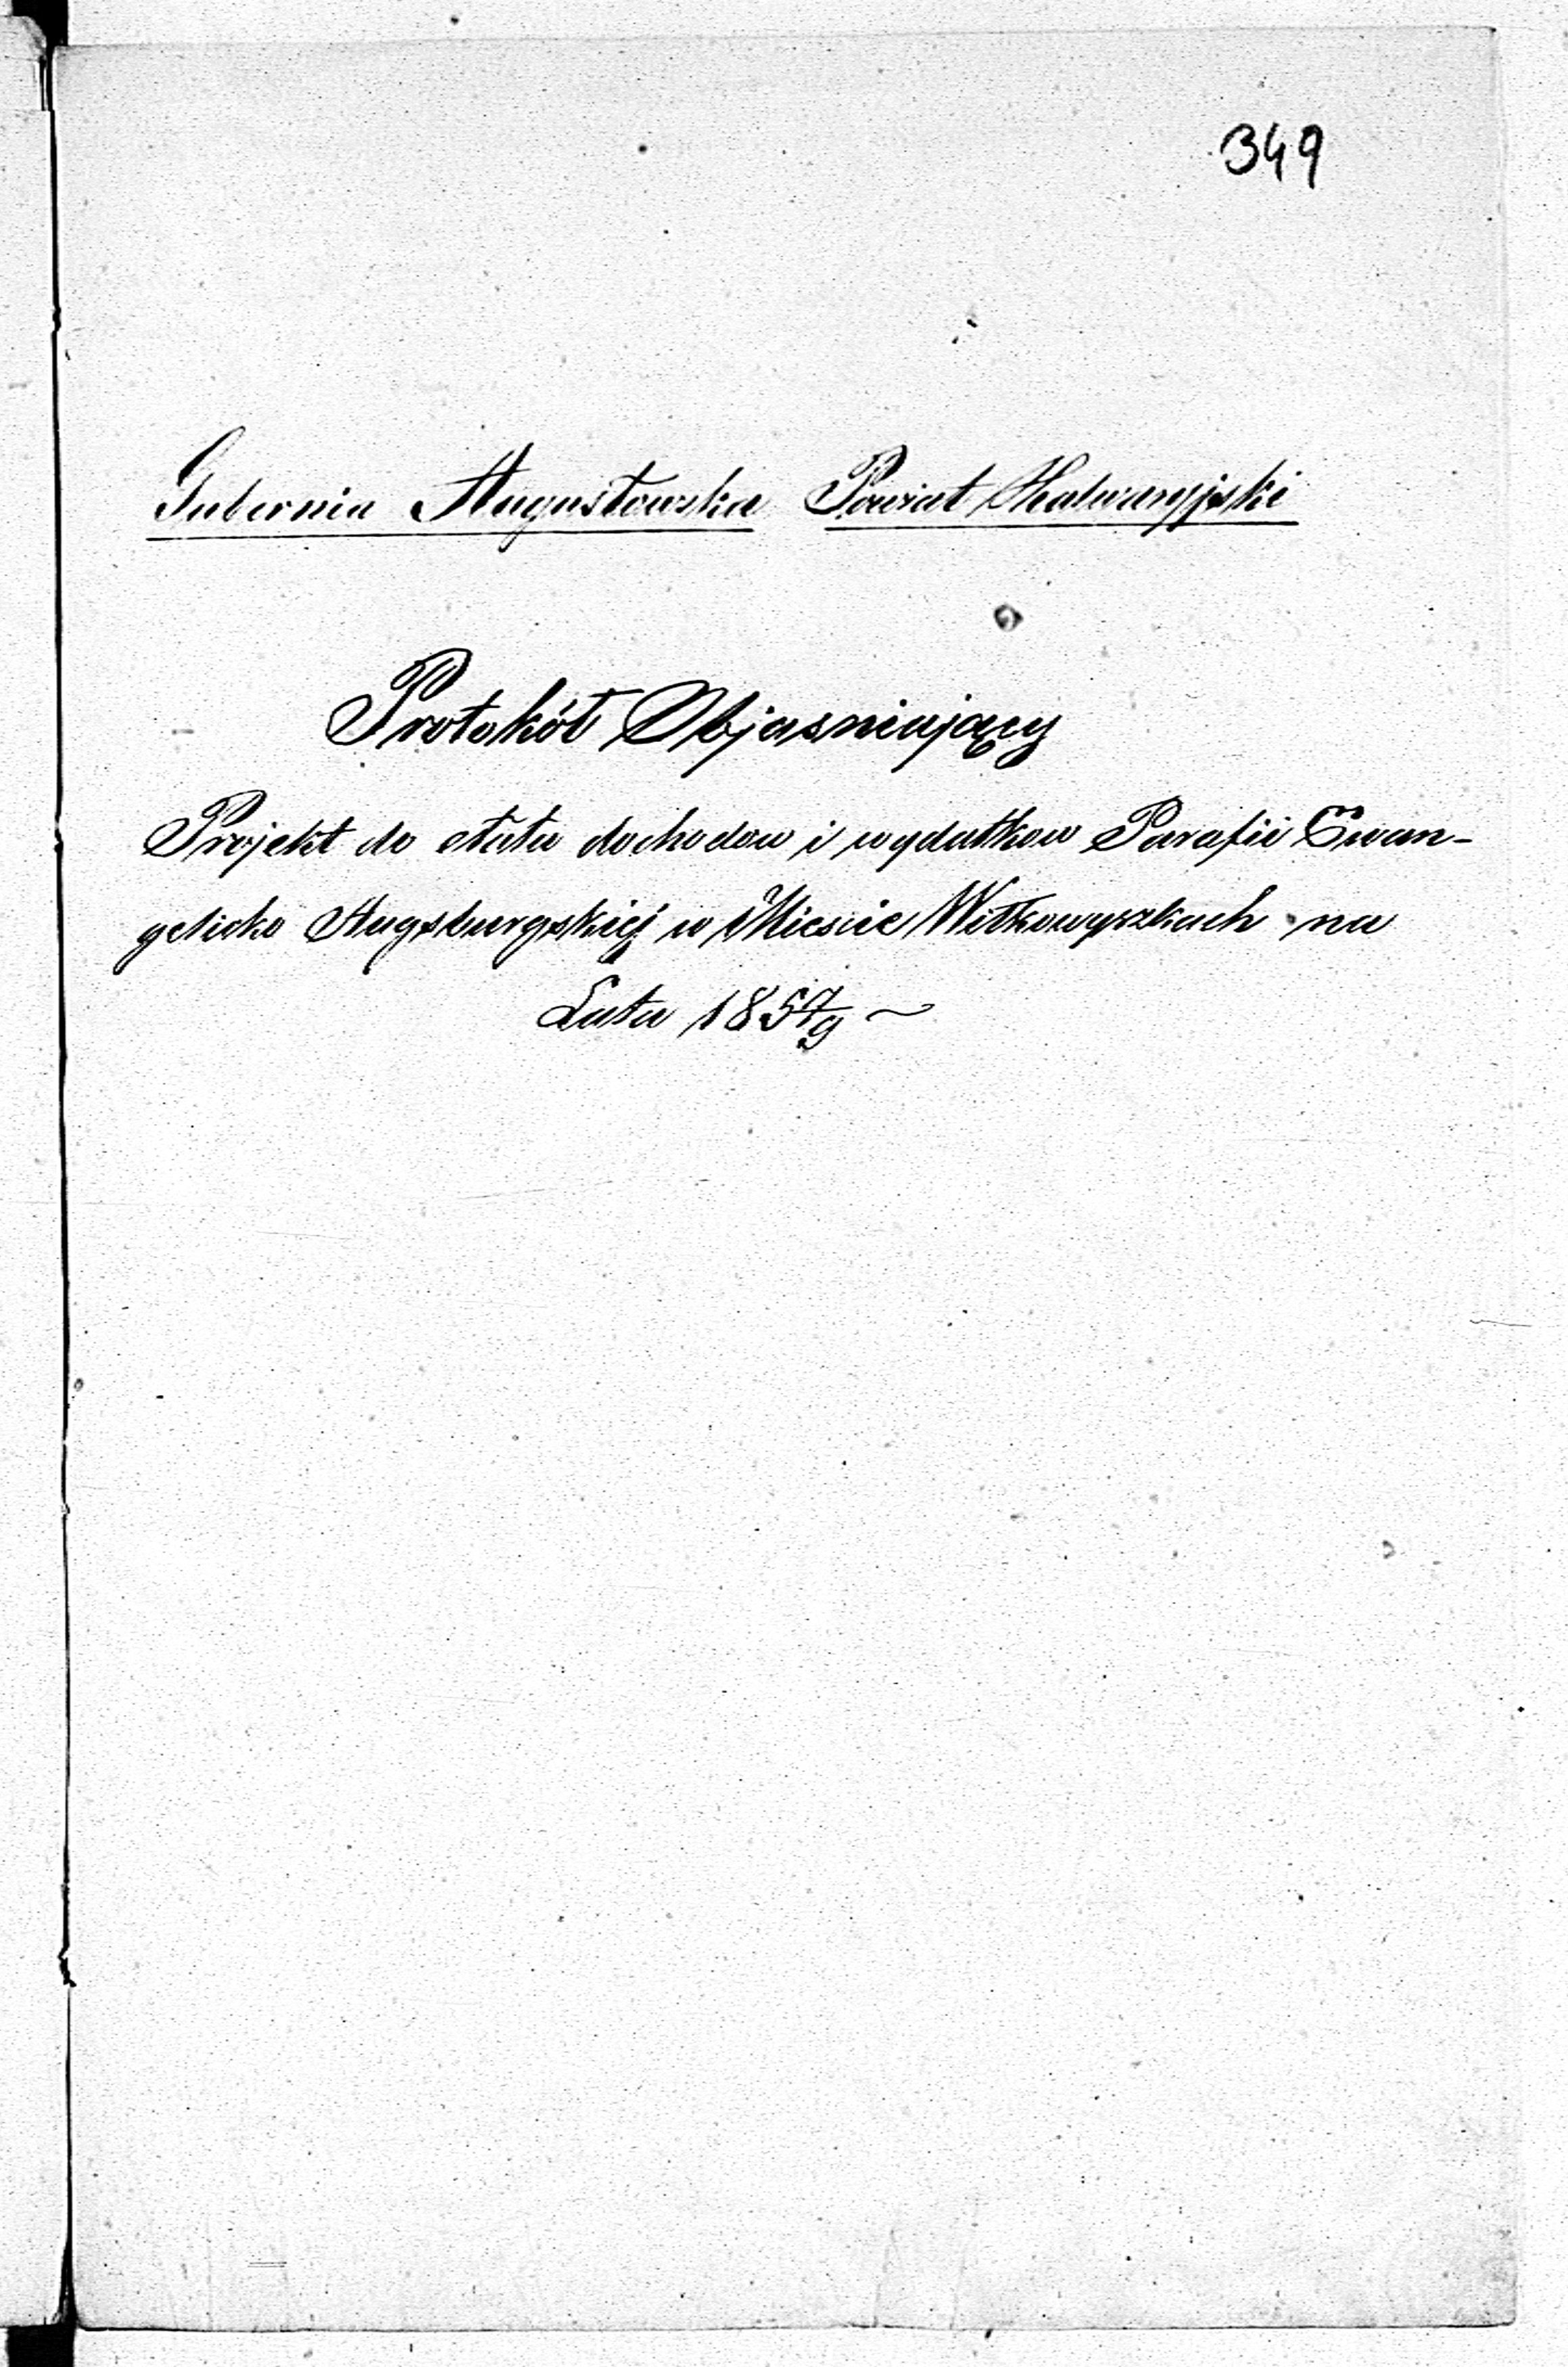 349
Gubernia Augustowska Powiat Kalwaryjski
Protokół Objasniający
Projekt do etatu dochodow i wydatkow Parafii Ewan-
gelicko Augsburgskiéj w Miescie Wiłkowyszkach na
Lata 1857/9 ~